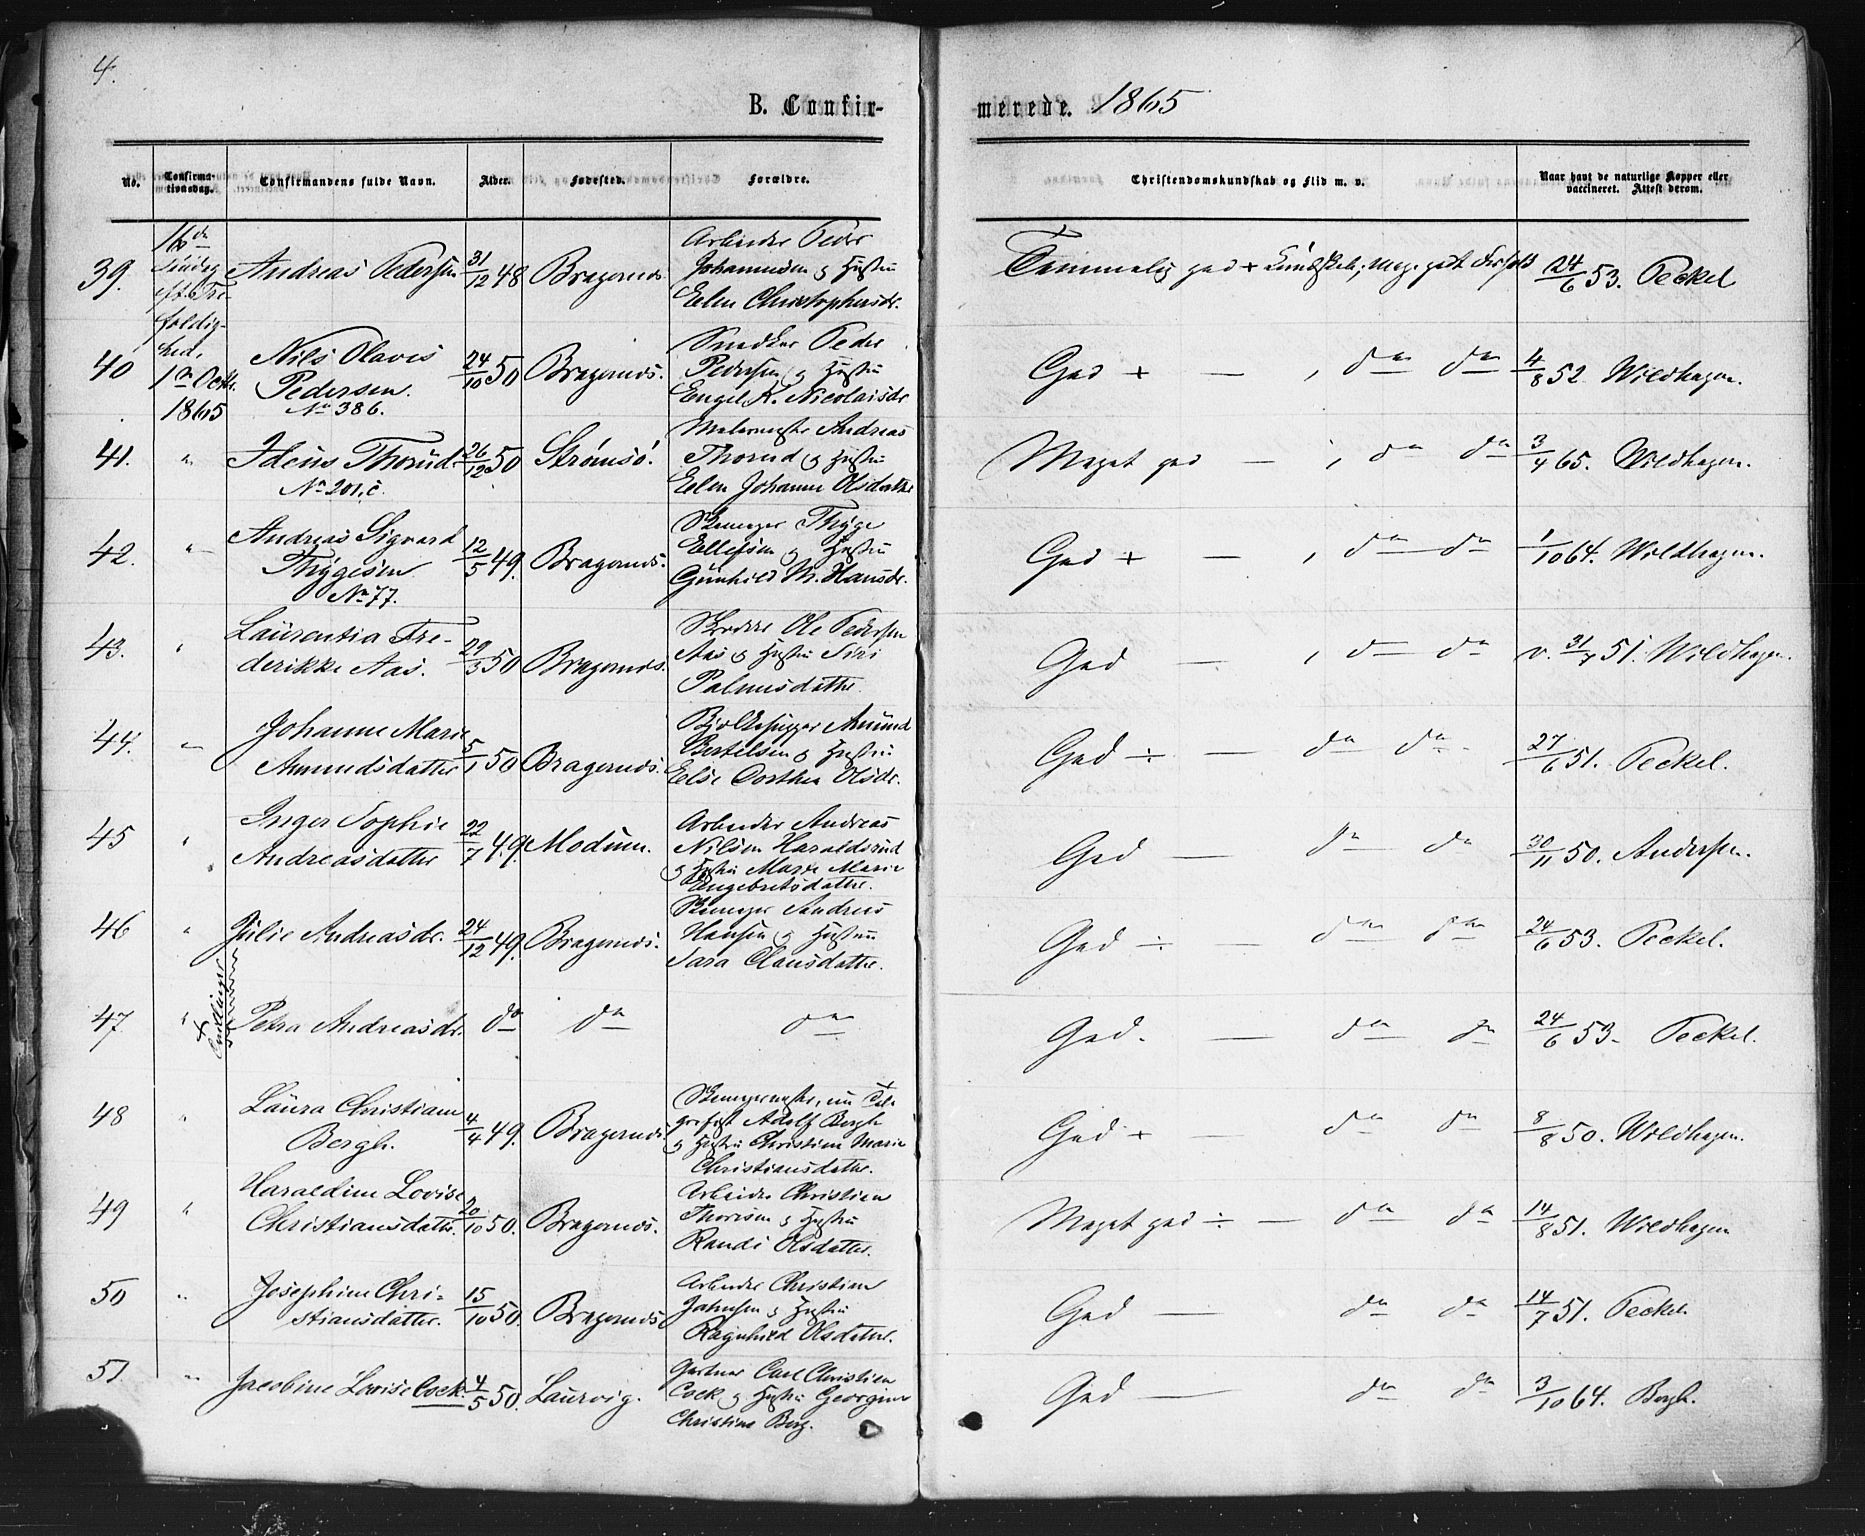 4.
B. Confir-
merede. 1865
No.
Confirma-
tionsdag.
Confirmandens fulde Navn.
Alder.
Fødested.
Forældre.
Christendomskundskab og Flid m. v.
Naar havt de naturlige Kopper eller
vaccineret. Attest derom.
16de
Søndag
eft. Tre-
foldig-
hed,
1ste Octbr.
1865
39.
Andreas Pedersen
31/12 48
Bragernes.
Arbeider Peder
Johannesen og Hustru
Elen Christophersdr.
Temmelig god + Kundskab, meg. godt Forhold
24/6 53. Peckel
40
Nils Olavis
Pedersen.
No 386.
24/10 50
Bragernes.
Snedker Peder
Pedersen og Hustru
Engel K. Nicolaisdr.
God + — , do do
4/8 52. Wildhagen.
41. "
Idens Thorud
No 201, c.
26/12 50
Strømsø.
Malermester Andreas
Thorud og Hustru
Elen Johanne Olsdatter
Meget god — , do do
3/4 65. Wildhagen.
42. "
Andreas Sigvard
Thygesen
No 77.
12/5 49.
Bragernes.
Thyge
Ellefsen og Hustru
Gunhild M. Hansdr.
God + — , do do
1/10 64. Wildhagen.
43. "
Laurentia Fre-
derikke Aas.
29/3 50
Bragernes.
Ole Pedersen
Aas og Hustru Siri
Palmesdatter.
God — , do do
v. 31/7 51. Wildhagen.
44. "
Johanne Marie
Amundsdatter
5/1 50
Bragernes.
Bjelkehugger Amund
Bertelsen og Hustru
Else Dorthea Olsdr.
God ÷ — do do
27/6 51. Peckel.
45 "
Inger Sophie
Andreasdatter
22/7 49
Modum.
Arbeider Andreas
Nilsen Haraldsrud
og Hustru Maren Marie
Engebretsdatter.
God — do do
30/11 50. Andersen.
46 "
Julie Andreasdr.
24/12 49.
Bragernes.
Andreas
Hansen og Hustru
Sara Clausdatter.
God ÷ — do do
24/6 53. Peckel.
47 "
+ Tvillinger
Petra Andreasdr.
do
do
do
God. — do do
24/6 53. Peckel.
48 "
Laura Christiane
Bergh.
4/4 49.
Bragernes.
nu Tele-
grafist Adolf Bergh
og Hustru Christiane Marie
Christiansdatter.
God + — do do
8/8 50. Wildhagen.
49 "
Haraldine Lovise
Christiansdatter.
20/10 50.
Bragernes.
Arbeider Christian
Thoresen og Hustru
Randi Olsdatter.
Meget god ÷ — do do
14/8 51. Wildhagen
50 "
Josephine Chri-
stiansdatter.
15/10 50.
Bragernes
Arbeider Christian
Jahnsen og Hustru
Ragnhild Olsdatter.
God — do do
14/7 51. Peckel.
51 "
Jacobine Lovise Cock.
4/5 50.
Laurvig.
Gartner Carl Christian
Cock og Hustru Georgine
Christine Berg.
God — do do
3/10 64. Bergh.